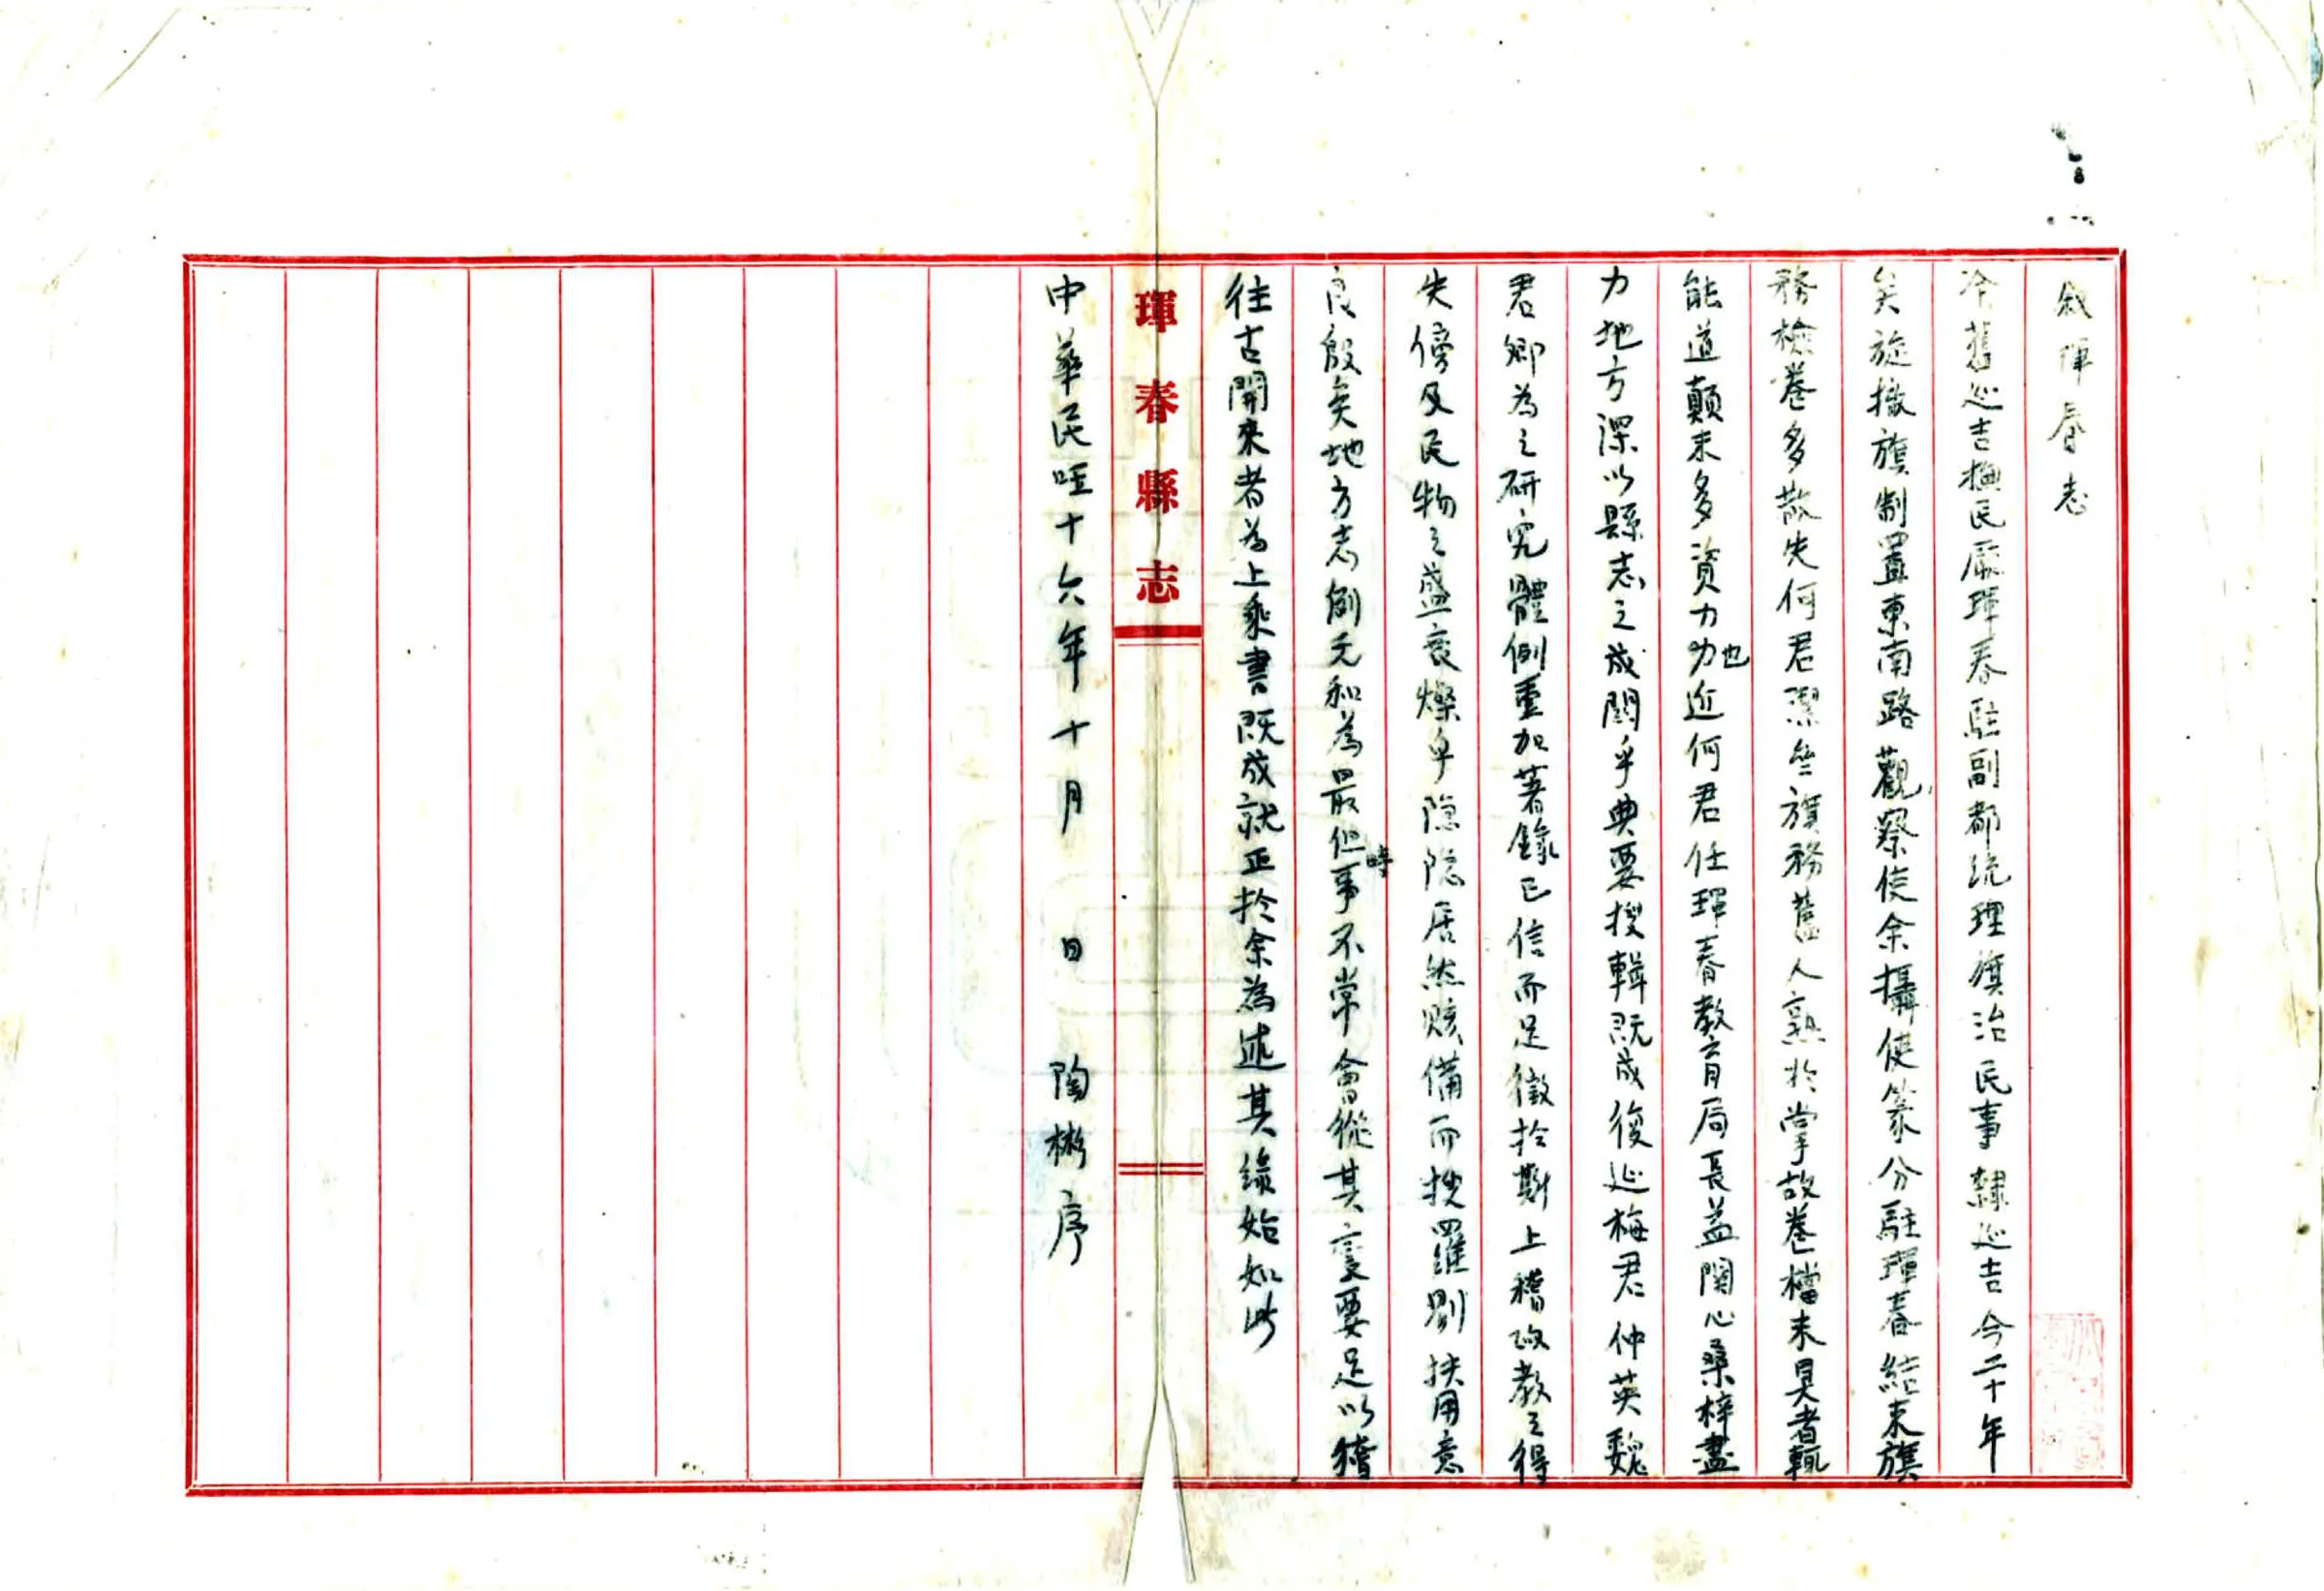 叙琿春志
舊巡吉撫民廳琿春駐副都統理旗治民事隸巡吉今二十年
矣旋撤旗制置東南路觀察使余攝使篆分駐琿春結束旗
務檢卷多散失何君潔叄旗務舊人熟於掌故卷檔未具者輒
能道顛末多資力也近何君任琿春教育局長益関心桑梓盡
力地方深以縣志之成関乎典要搜輯既成復延梅君仲英魏
君卿為之研究體例重加著錄已信而足徵於斯上稽政教之得
失傍及民物之盛衰燦乎隐隐居然賅備而搜羅剔抉用意
良殷矣地方志例元和為最但時事不常會從其变要足以稽
往古開來者為上乘書既成就正於余為述其緣始如此
琿春縣志
中華民囯十六年十月 日 陶彬序